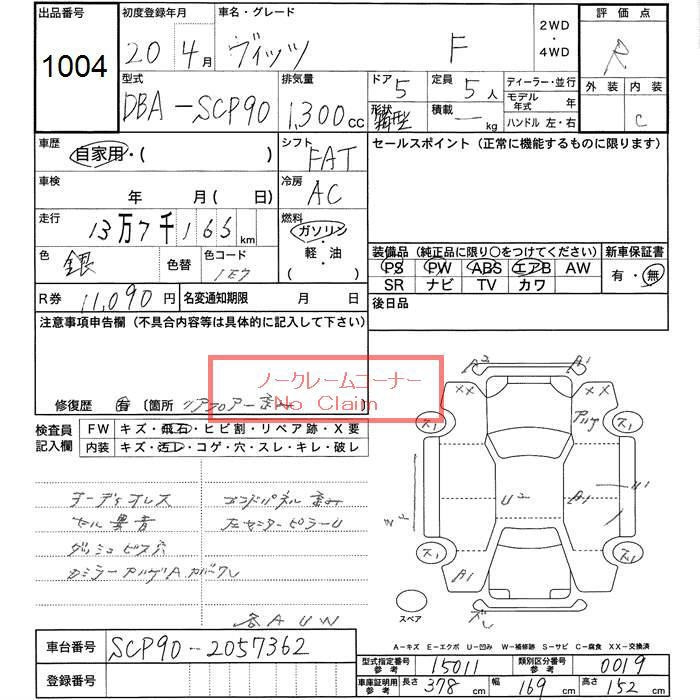 出品番号 初度登録年月 車名・グレード 2WD・4WD 評価点
1004 20 4月 ヴィッツ F R
型式 排気量 ドア 5 定員 5人 ディーラー・並行 外装 内装
DBA-SCP90 1,300cc 形状 箱型 積載 kg モデル年式 年 C
ハンドル 左・右
車歴 シフト セールスポイント(正常に機能するものに限ります)
自家用・( ) FAT
車検 年 月( 日) 冷房 AC
走行 13万7千165km 燃料 ガソリン・軽・油
色 銀 色替 色コード 1E7
装備品(純正品に限り〇をつけてください) 新車保証書
PS PW ABS エアB AW 有・無
SR ナビ TV カワ
R券 11,090円 名変通知期限 月 日 後日品
注意事項申告欄(不具合内容等は具体的に記入して下さい)
ノークレームコーナー
No Claim
修復歴 有 〔箇所 リアフロアー
検査員記入欄 FW キズ・飛石・ヒビ割・リペア跡・X要
内装 キズ・汚レ・コゲ・穴・スレ・キレ・破レ
オーディオレス エンドパネル
セル異音 左センターピラーU
ダッシュビス穴
カミラー
各AUW
A2 A1
XX XX
ス1 ス1
U2 A1 U1
ス1 ス1
A1
スペア
A-キズ E-エクボ U-凹み W-補修跡 S-サビ C-腐食 XX-交換済
車台番号 SCP90-2057362
登録番号
型式指定番号 参考 15011 類別区分番号 参考 0019
車庫証明用 参考 長さ 378cm 幅 169cm 高さ 152cm